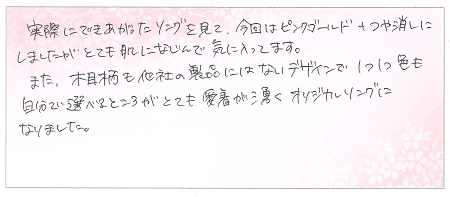 実際にできあがったリングを見て、今回はピンクゴールド+つや消しに
しましたがとても肌になじんで気に入ってます。
また、木目柄も他社の製品にはないデザインで1つ1つ色も
自分で選べるところがとても愛着が湧くオリジナルリングに
なりました。